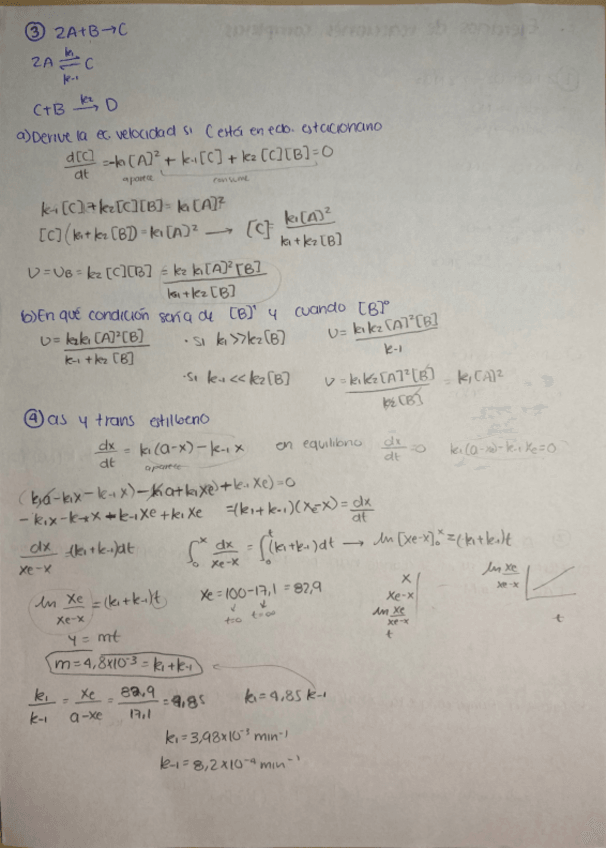 ③ 2A+B→C
2A ⇌ C k₁ k₋₁
C+B →k₂ D
a) Derive la ec. velocidad si C está en edo. estacionario
d[C]/dt = -k₁[A]² + k₋₁[C] + k₂[C][B] = 0
aparece consume
k₋₁[C] + k₂[C][B] = k₁[A]²
[C](k₋₁+k₂[B]) = k₁[A]² → [C] = k₁[A]²/k₋₁+k₂[B]
v = v_B = k₂[C][B] = k₂k₁[A]²[B]/k₋₁+k₂[B]
b) En qué condición sería de [B]¹ y cuando [B]⁰
v = k₂k₁[A]²[B]/k₋₁+k₂[B] · si k₁>>k₂[B] v = k₁k₂[A]²[B]/k₋₁
· si k₋₁<<k₂[B] v = k₁k₂[A]²[B]/k₂[B] = k₁[A]²
④ as y trans estilbeno
dx/dt = k₁(a-x)-k₋₁x en equilibrio dx/dt = 0 k₁(a-xe)-k₋₁xe=0
aparece
(k₁a-k₁x-k₋₁x)-k₁a+k₁xe+k₋₁xe)=0
-k₁x-k₋₁x+k₋₁xe+k₁xe =(k₁+k₋₁)(xe-x)=dx/dt
dx/xe-x =(k₁+k₋₁)dt ∫₀ˣ dx/xe-x = ∫₀ᵗ(k₁+k₋₁)dt → ln[xe-x]₀ˣ=(k₁+k₋₁)t
ln xe/xe-x = (k₁+k₋₁)t xe=100-17,1 = 82,9 x ln xe/xe-x
t=0 t=∞ xe-x
y = mt ln xe/xe-x t
t
m=4,8x10⁻³=k₁+k₋₁
k₁/k₋₁ = xe/a-xe = 82,9/17,1 = 4,85 k₁=4,85 k₋₁
k₁=3,98x10⁻³ min⁻¹
k₋₁=8,2x10⁻⁴ min⁻¹